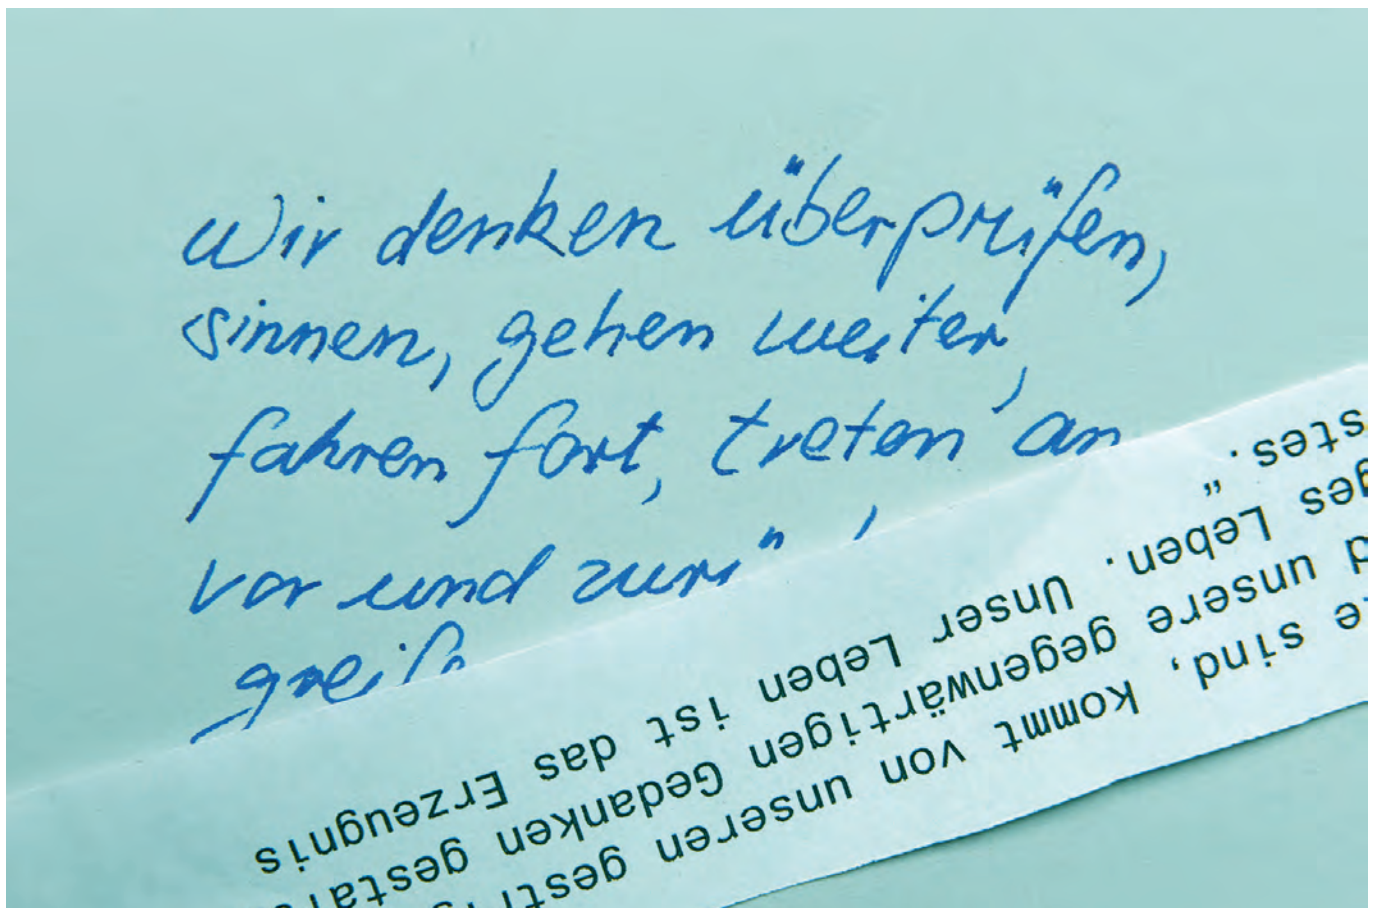 Wir denken überprüfen,
sinnen, gehen weiter,
fahren fort, treten an
vor und
sind, kommt von unseren gestri
unsere gegenwärtigen Gedanken gestal
ges Leben. Unser Leben ist das Erzeugnis
stes."